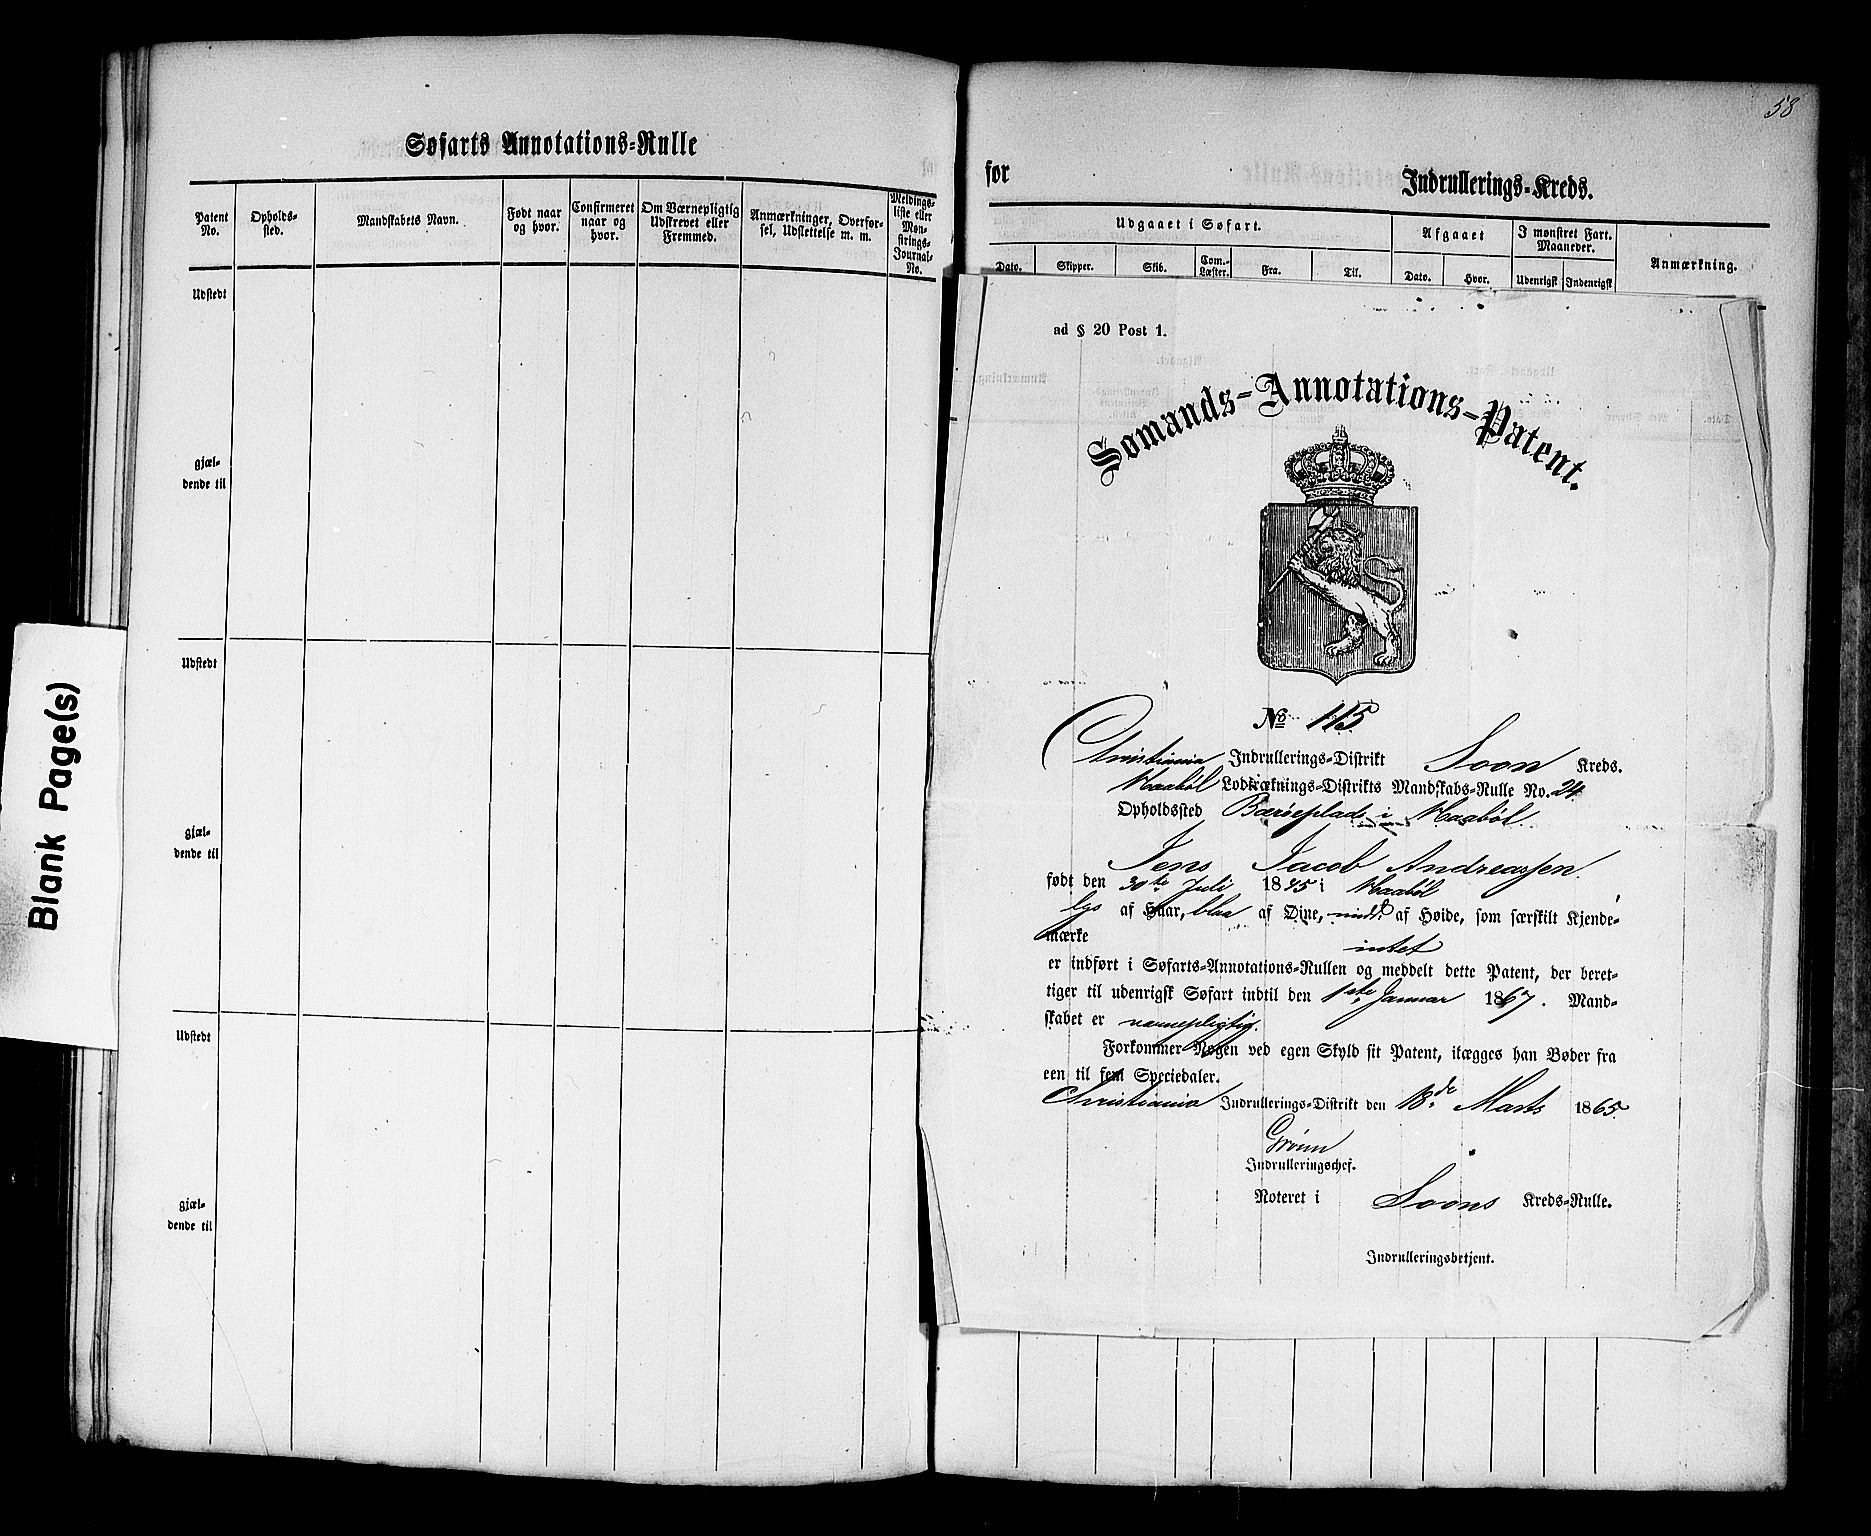 Søfarts Annotations-Rulle
Patent No.
Opholds-sted.
Mandskabets Navn.
Født naar og hvor.
Confirmeret naar og hvor.
Om Værnepligtig Udskrevet eller Fremmed.
Anmærkninger, Overfør-sel, Udslettelse m. m.
Meldings-liste eller Møn-strings-Journal-No.
Udstedt
gjæl-
dende til
Udstedt
gjæl-
dende til
Udstedt
gjæl-
dende til
Blank Page(s)
58
for Indrullerings-Kreds.
Udgaaet i Søfart.
Afgaaet
I mønstret Fart. Maaneder.
Anmærkning.
Dato. Skipper. Skib. Com.-Læster. Fra. Til. Dato. Hvor. Udenrigsk Indenrigsk
ad § 20 Post 1.
Sømands-Annotations-Patent.
No 115
Christiania Indrullerings-Distrikt Soon Kreds.
Haabøl Lodtræknings-Distrikts Mandskabs-Rulle No. 24
Opholdssted i Haabøl
Jens Jacob Andreassen
født den 30te Juli 1845 i Haabøl
lys af Haar, blaa af Øine, midd: af Høide, som særskilt Kjende-
mærke intet
er indført i Søfarts-Annotations-Rullen og meddelt dette Patent, der beret-
tiger til udenrigsk Søfart indtil den 1ste Januar 1867. Mand-
skabet er værnepligtig.
Forkommer Nogen ved egen Skyld sit Patent, ilægges han Bøder fra
een til fem Speciedaler.
Christiania Indrullerings-Distrikt den 18de Marts 1865
Grønn
Indrulleringschef.
Noteret i Soons Kreds-Rulle.
Indrulleringsbetjent.